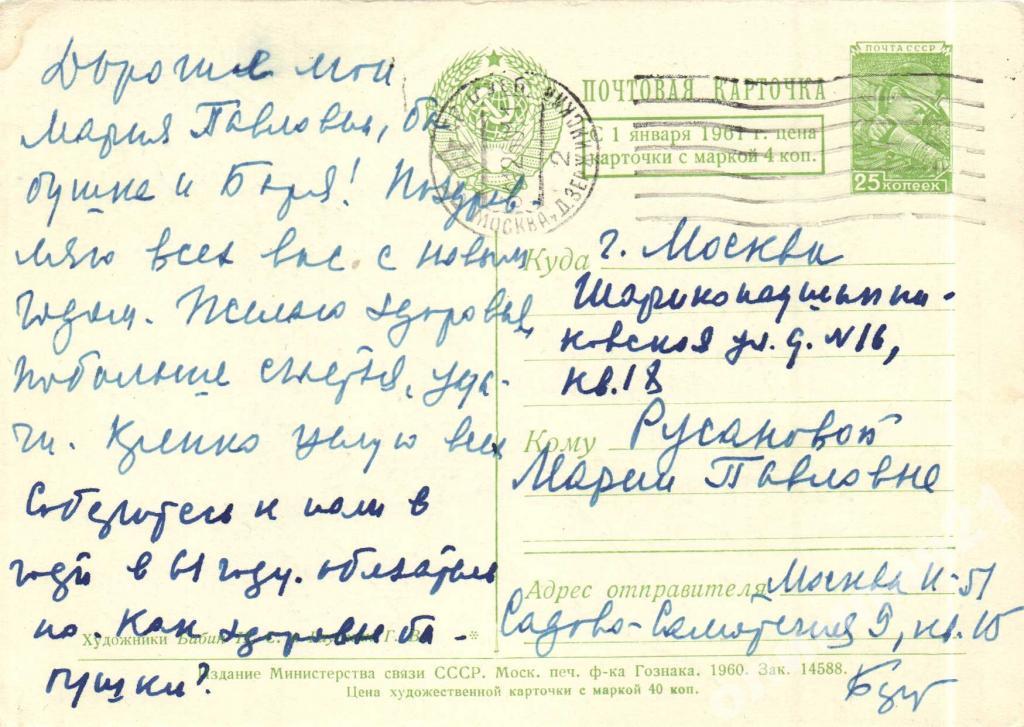 Дорогие мои
Мария Павловна, ба
бушка и Боря! Поздрав-
ляю всех вас с новым
годом. Желаю здоровья,
побольше счастья, уда-
чи. Крепко целую всех
Соберитесь к нам в
гости в 61 году. обязатель
но. Как здоровье ба-
бушки?
ПОЧТОВАЯ КАРТОЧКА
С 1 января 1961 г. цена
карточки с маркой 4 коп.
ПОЧТА СССР
25 КОПЕЕК
МОСКВА, ДЗЕРЖИНСКИЙ
2
Куда г. Москва
Шарикоподшипни-
ковская ул. д. N 16,
кв. 18
Кому Русановой
Марии Павловне
Адрес отправителя Москва И-51
Садово-Самотечная 9, кв. 15
Художники
Издание Министерства связи СССР. Моск. печ. ф-ка Гознака. 1960. Зак. 14588.
Цена художественной карточки с маркой 40 коп.